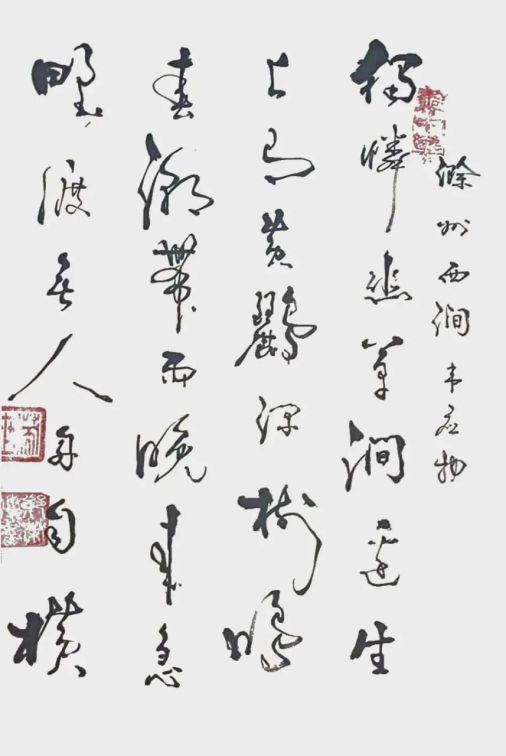 滁州西涧 韦应物
獨憐幽草澗邊生
上有黄鸝深樹鳴
春潮帶雨晚来急
野渡無人舟自横